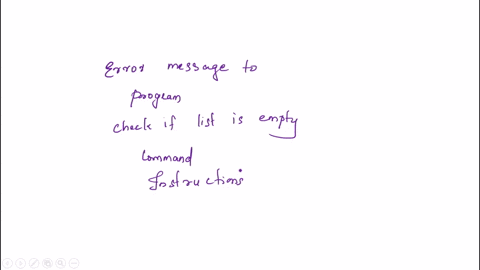 Error message to
program
check if list is empty
command
Instructions